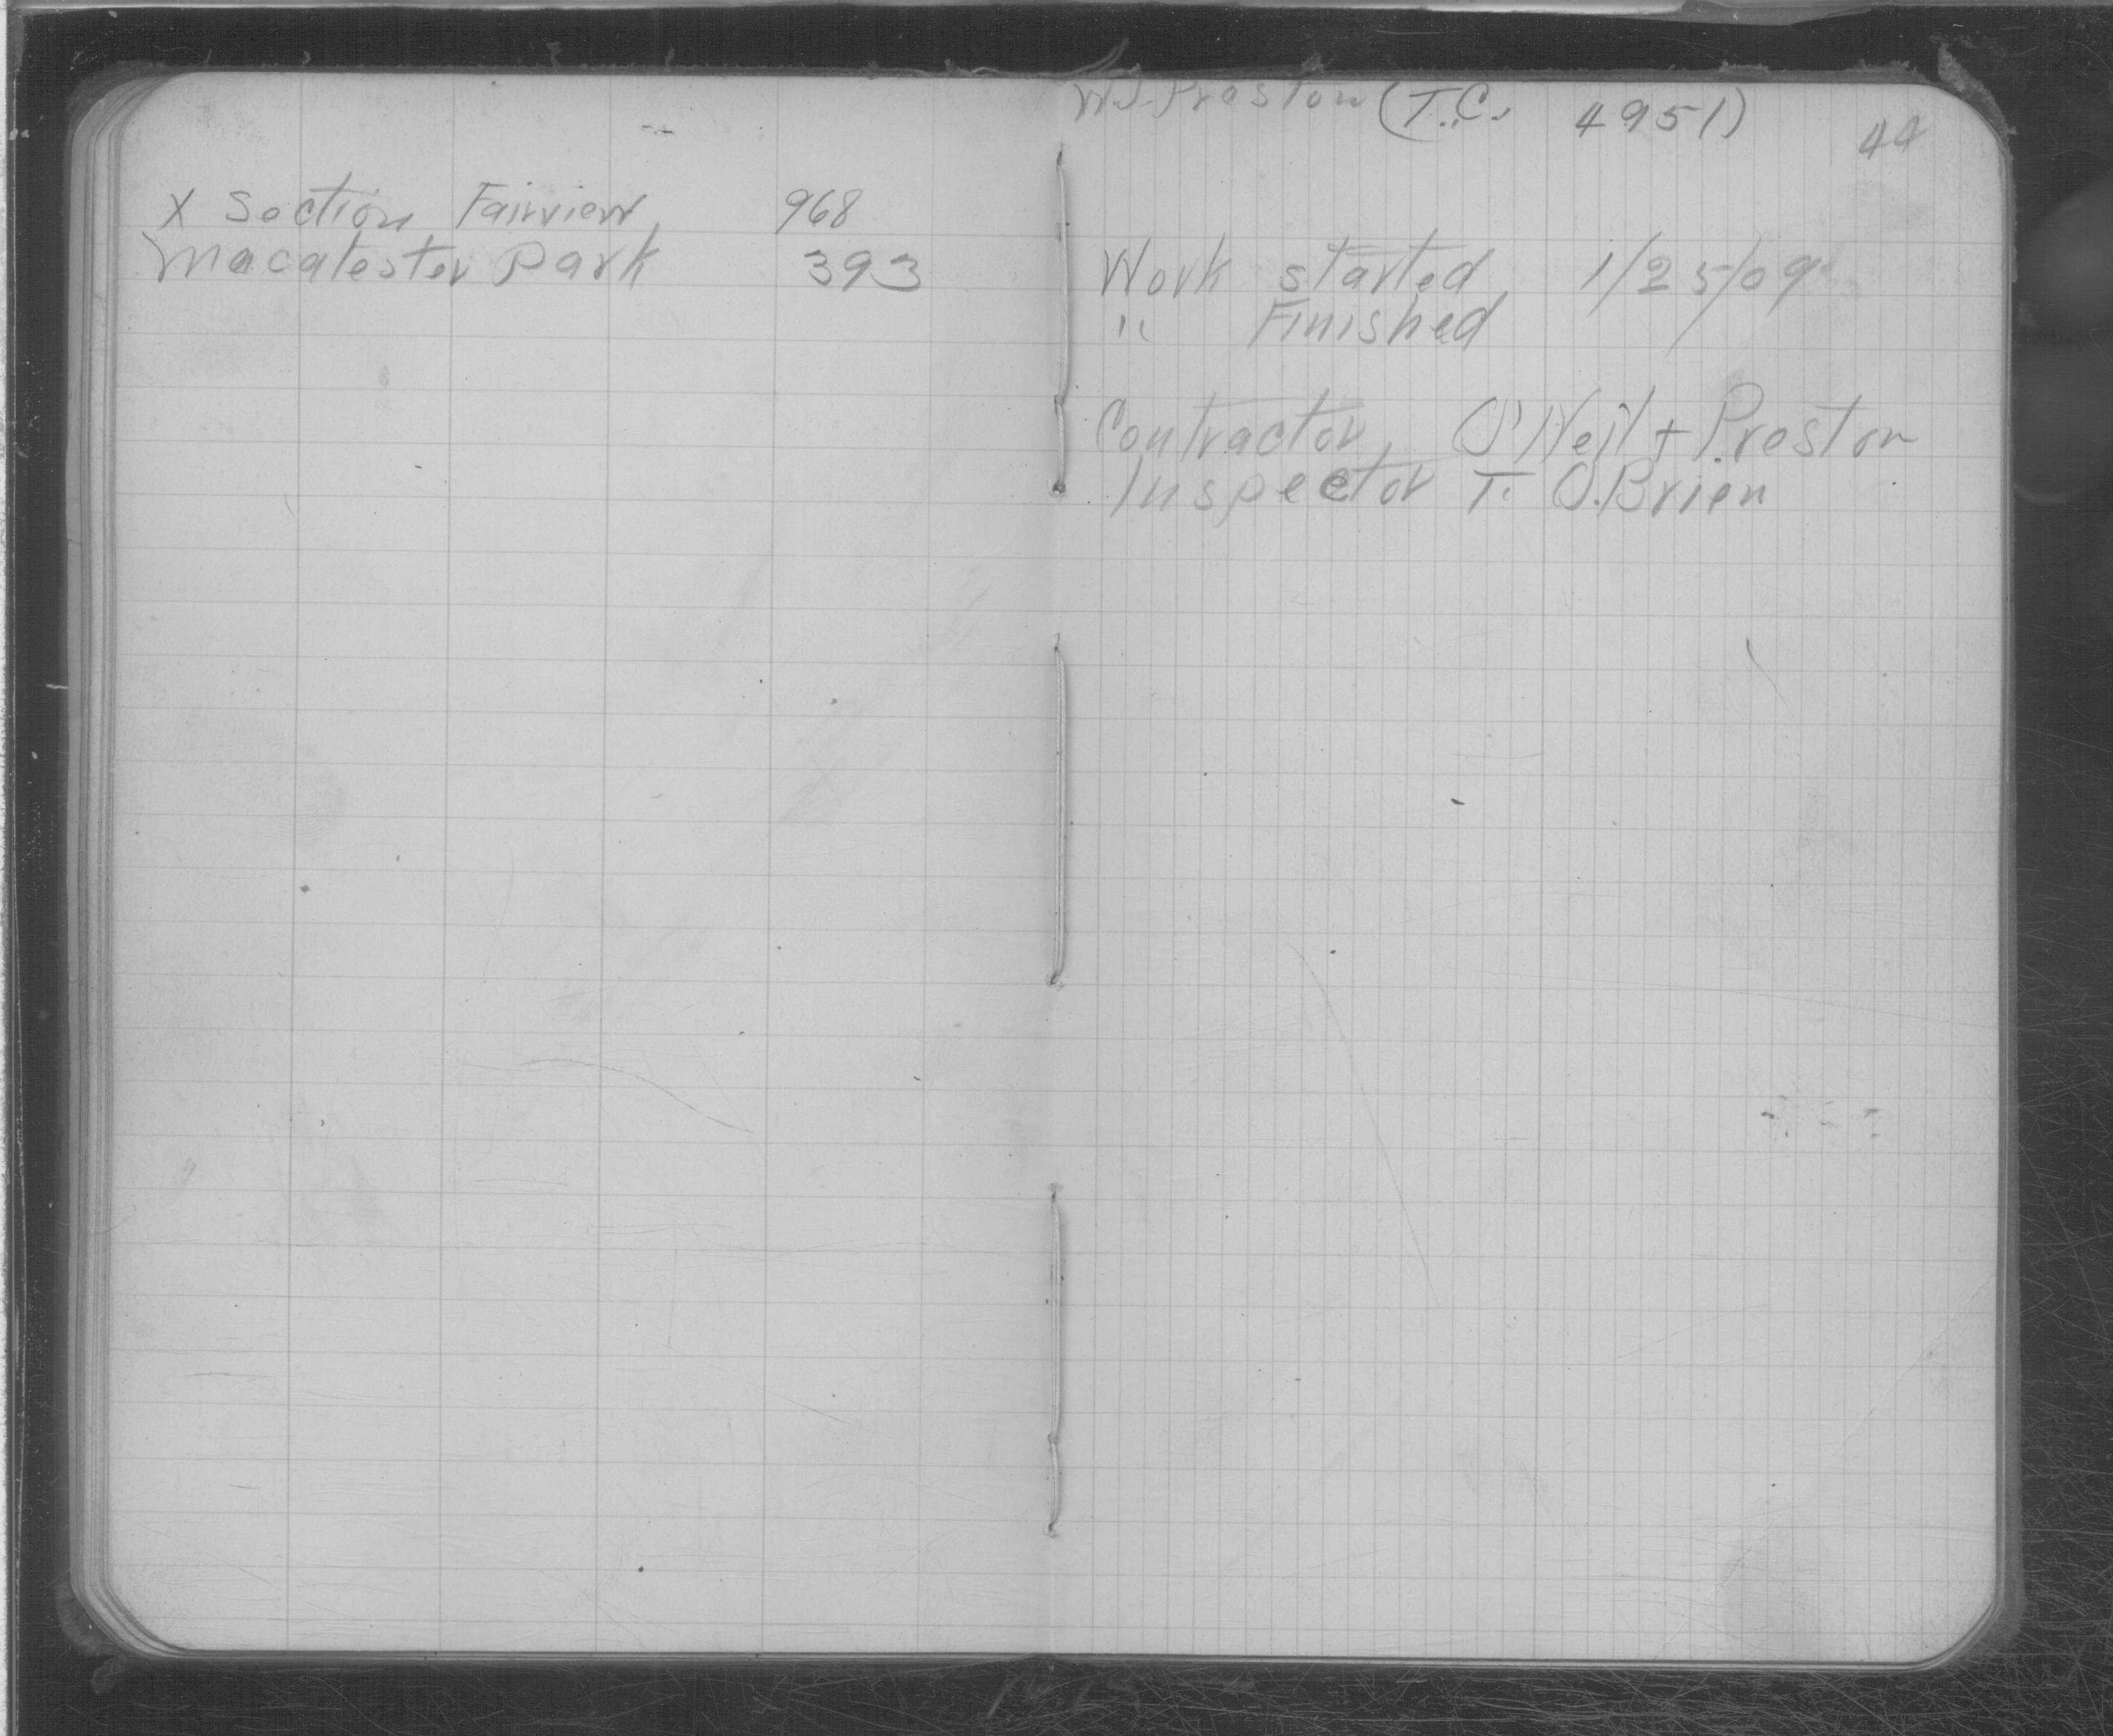 X Section Fairview 968
Macalester Park 393
W.J. Preston (T.C. 4951)
44
Work started 1/25/09
" Finished /
Contractor O'Neil + Preston
Inspector T. O.Brien